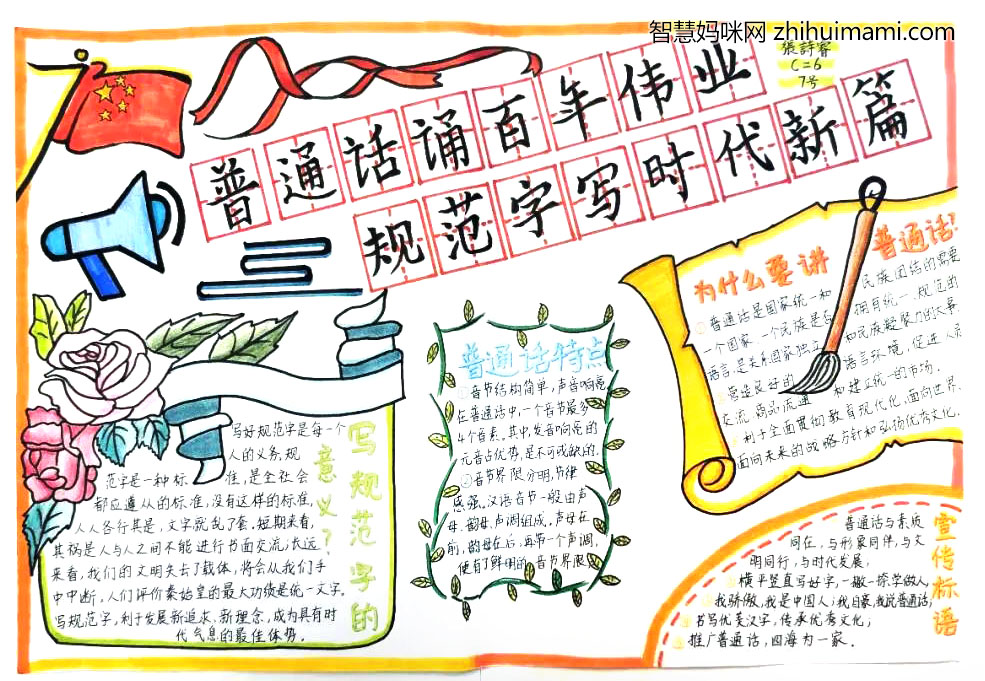 智慧妈咪网 zhihuimami.com
張詩睿
C=6
7号
普通话诵百年伟业
规范字写时代新篇
写规范字的
意义?
写好规范字是每一个
人的义务,规
范字是一种标准,是全社会
都应遵从的标准,没有这样的标准,
人人各行其是,文字就乱了套。短期来看,
其祸是人与人之间不能进行书面交流;长远
来看,我们的文明失去了载体,将会从我们手
中中断,人们评价秦始皇的最大功绩是统一文字。
写规范字,利于发展新追求、新理念,成为具有时
代气息的最佳体势。
普通话特点
①音节结构简单,声音响亮
在普通话中,一个音节最多
4个音素,其中,发音响亮的
元音占优势,是不可或缺的.
②音节界限分明,节律
感强。汉语音节一般由声
母、韵母、声调组成,声母在
前,韵母在后,再带一个声调,
便有了鲜明的音节界限
为什么要讲 普通话?
普通话是国家统一和 民族团结的需要
一个国家、一个民族是否 拥有统一、规范的
语言,是关系国家独立 和民族凝聚力的大事
营造良好的 语言环境,促进人员
交流 商品流通 和建立统一的市场.
利于全面贯彻教育现代化,面向世界、
面向未来的战略方针和弘扬优秀文化.
宣传标语
普通话与素质
同在,与形象同伴,与文
明同行,与时代发展,
横平竖直写好字,一撇一捺学做人
我骄傲,我是中国人;我自豪,我说普通话;
书写优美汉字,传承优秀文化;
推广普通话,四海为一家.